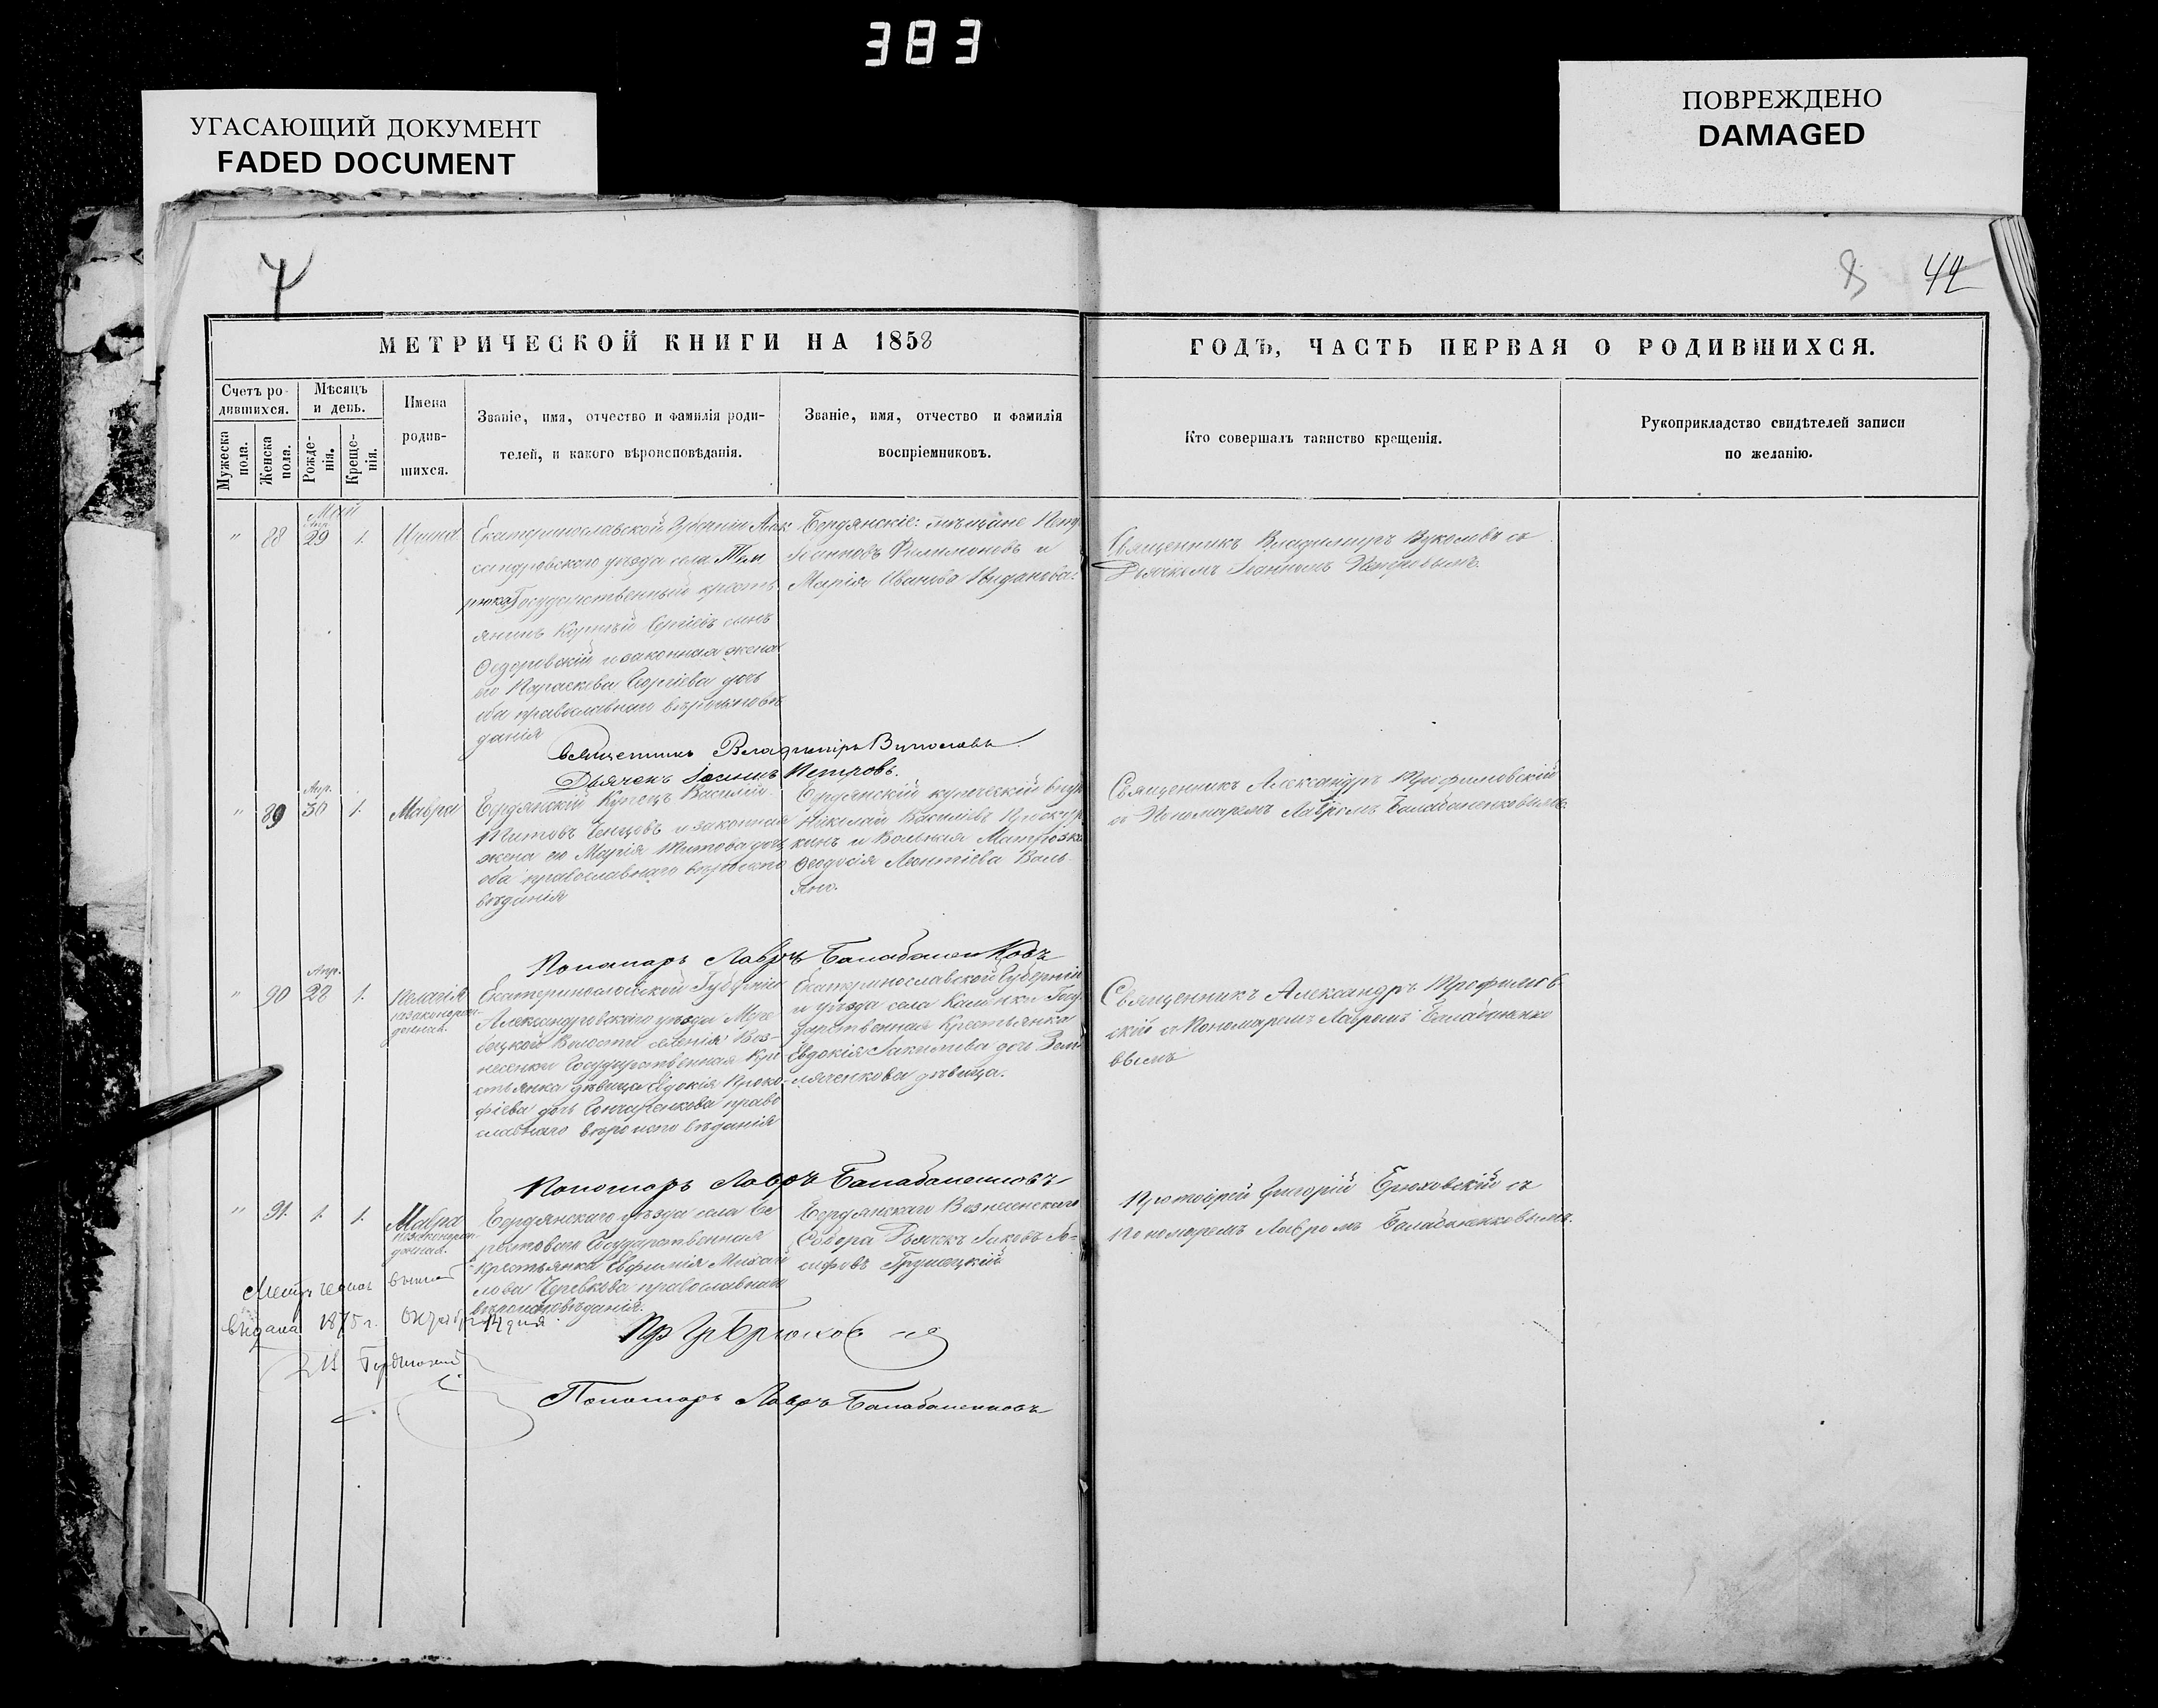 383
УГАСАЮЩИЙ ДОКУМЕНТ
FADED DOCUMENT
ПОВРЕЖДЕНО
DAMAGED
7
8
42
МЕТРИЧЕСКОЙ КНИГИ НА 1858
ГОДЪ, ЧАСТЬ ПЕРВАЯ О РОДИВШИХСЯ.
Счетъ ро-
дившихся.
Мужеска пола.
Женска пола.
Мѣсяцъ
и день.
Рожде-
нія.
Креще-
нія.
Имена
родив-
шихся.
Званіе, имя, отчество и фамилія роди-
телей, и какого вѣроисповѣданія.
Званіе, имя, отчество и фамилія
воспріемниковъ.
Кто совершалъ таинство крещенія.
Рукоприкладство свидѣтелей записи
по желанію.
Май
Апр.
" 88 29 1. Ирина
Екатеринославской Губерніи Алек
сандровскаго уѣзда села Тем
рюка Государственный кресть
янинъ Корнѣй Сергіевъ сынъ
Федоровскій и законная жена
его Параскева Георгіева дочь
оба православнаго вѣроисповѣ
данія
Бердянскіе: мѣщане Петръ
Іоанновъ Филимоновъ и
Марія Иванова
Священникъ Владимиръ Вуколовъ съ
Дьячкомъ Іоанномъ Петровымъ.
Священникъ Владимиръ Вуколовъ.
Дьячекъ Іоаннъ Петровъ.
Апр.
" 89 30 1. Мавра
Бердянскій Купецъ Василій
Титовъ Ченцовъ и законная
жена его Марія Титова дочь
оба православнаго вѣроиспо
вѣданія
Бердянскій купеческій внукъ
Николай Василіевъ Проскур
кинъ и Вольная Матрозка
Феодосія Леонтіева Валь-
яно.
Священникъ Александръ Трофимовскій
съ Пономаремъ Лавромъ Балабаненковымъ.
Пономарь Лавръ Балабаненковъ
Апр.
" 90 28 1. Пелагія
незаконорож-
денная.
Екатеринославской Губерніи
Александровскаго уѣзда
Волости селенія Воз-
несенки Государственная Кре
стьянка дѣвица Евдокія Проко-
фіева дочь Гончаренкова право
славнаго вѣроисповѣданія
Екатеринославской Губерніи
и уѣзда села Госу
дарственная Крестьянка
Евдокія дочь Зем
ляченкова дѣвица.
Священникъ Александръ Трофимов
скій съ Пономаремъ Лавромъ Балабаненко
вымъ
Пономарь Лавръ Балабаненковъ
" 91. 1. 1. Мавра
незаконорож-
денная.
Бердянскаго уѣзда села Бе
рестоваго Государственная
Крестьянка Евфимія Михай
лова Черевкова православнаго
вѣроисповѣданія.
Бердянскаго Вознесенскаго
Собора Дьячекъ Іаковъ Іо-
сифовъ Грушецкій
Протоіерей Григорій Брюховскій съ
Пономаремъ Лавромъ Балабаненковымъ.
выдана 1875 г. Октября дня
Пр Гр Брюховскій
Пономарь Лавръ Балабаненковъ